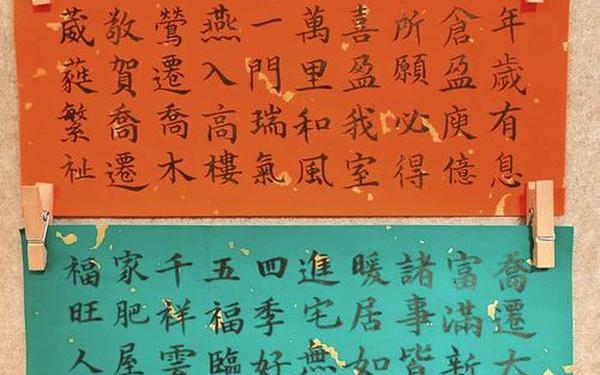 年歲有息
倉盈庾億
所願必得
喜盈我室
萬里和風
一門瑞氣
燕入高樓
鶯遷喬木
敬賀喬遷
葳蕤繁祉
喬遷大
富滿新
諸事皆
暖居如
進宅無
四季好
五福臨
千祥雲
家肥屋
福旺人